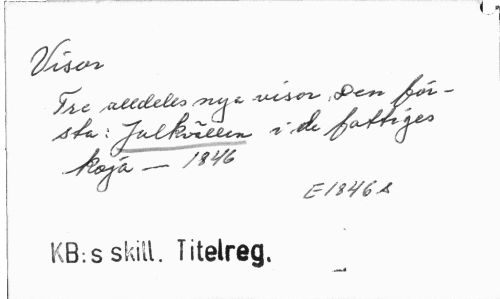 Visor
Tre alldeles nya visor. Den för-
sta: Julkvällen i de fattiges
koja — 1846
E1846 s
KB:s skill. Titelreg.